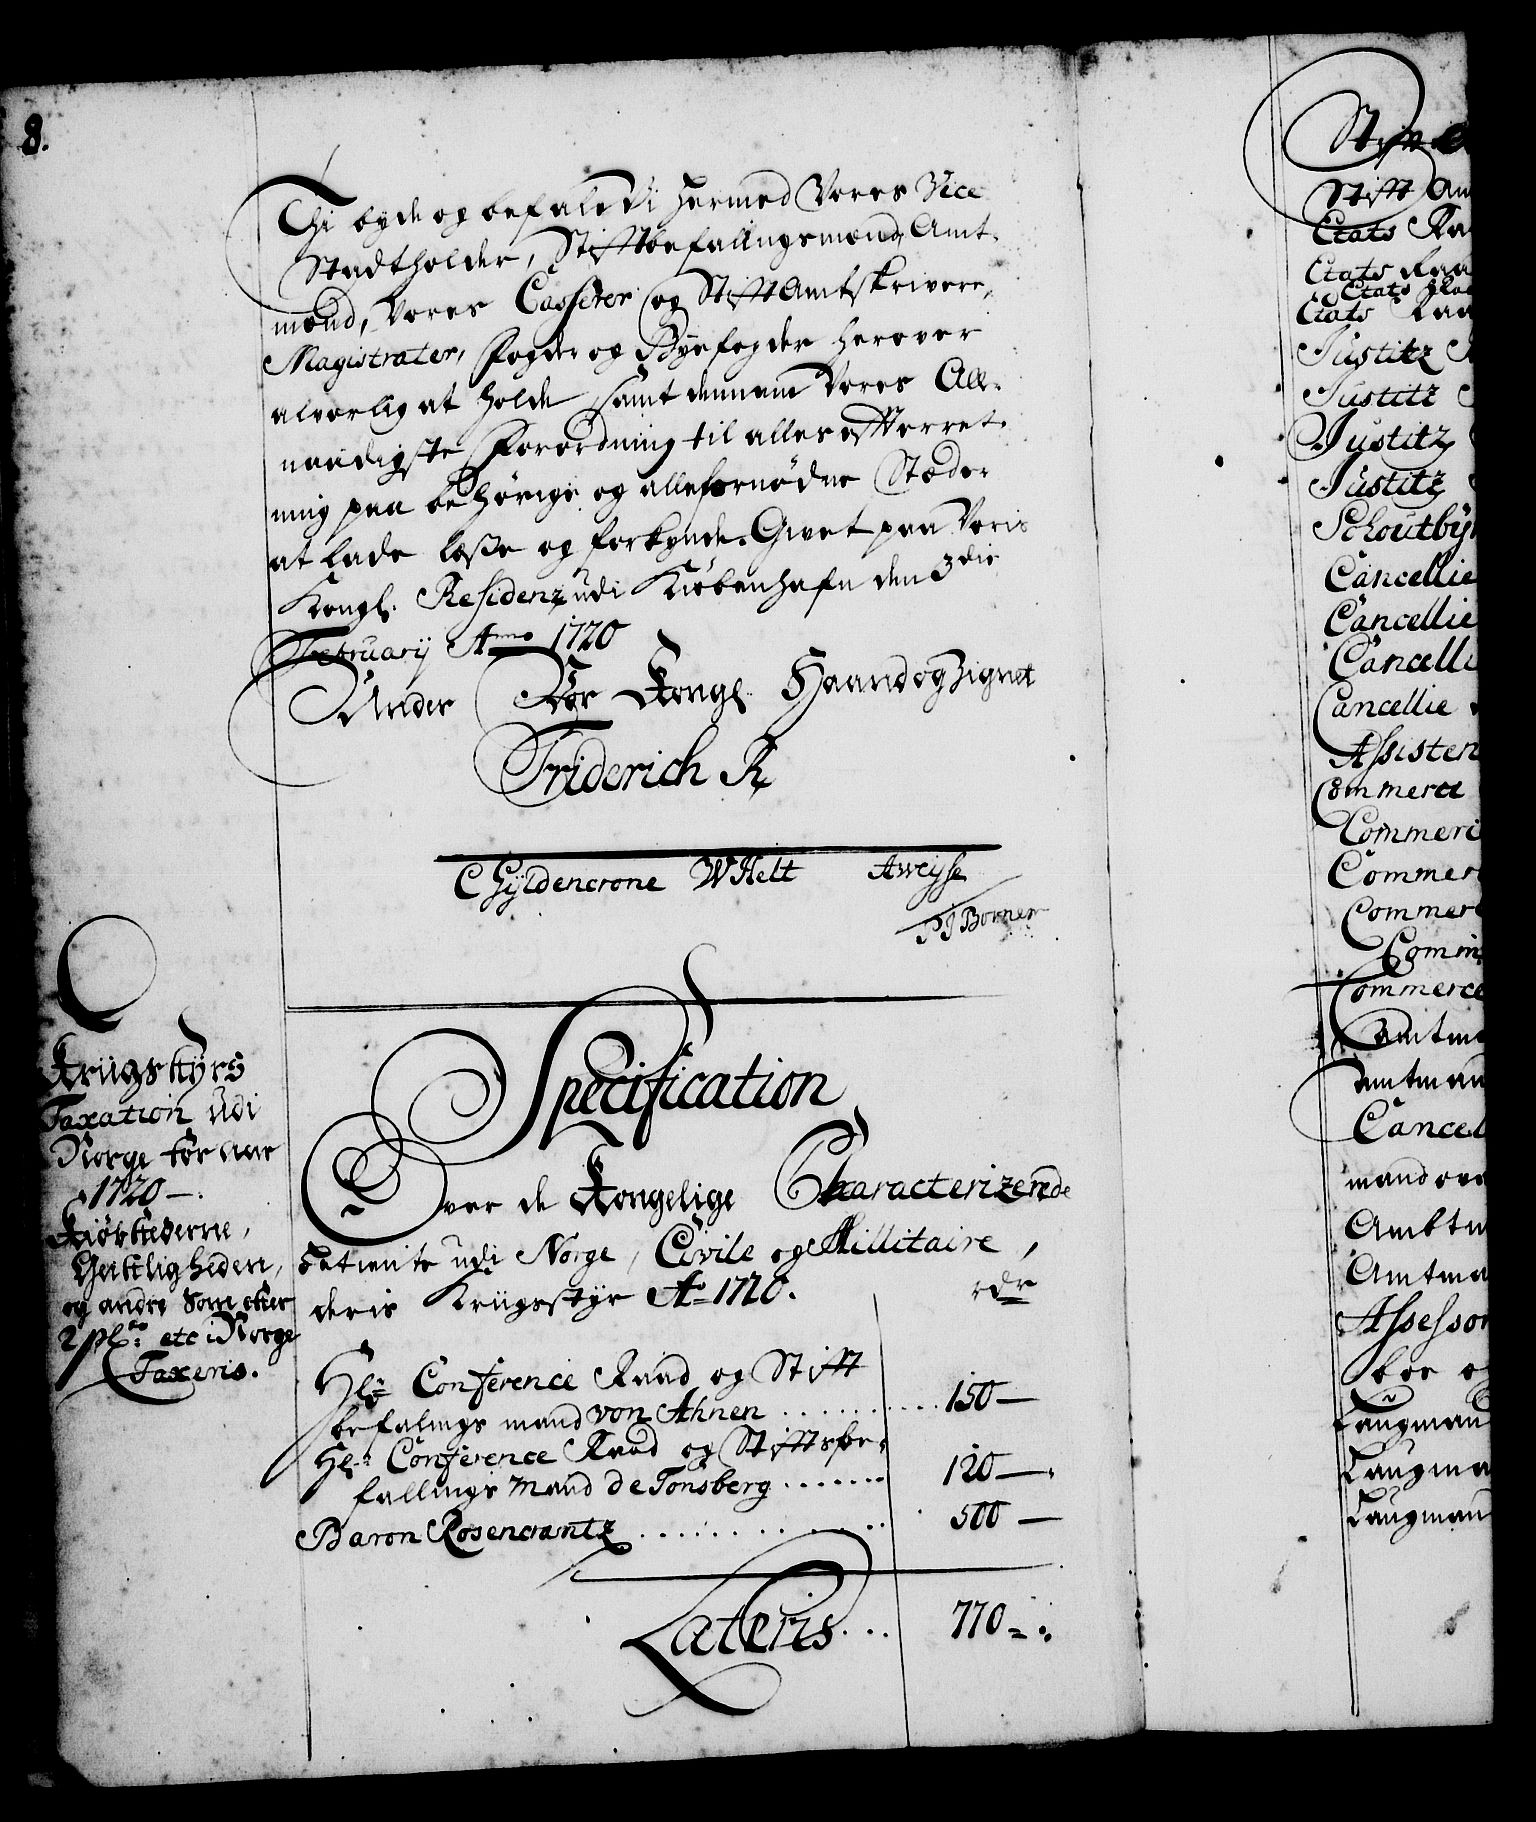 8.
Thi byde og befale Vi hermed Vores Vice
Stadtholder, Stiftbefallingsmænd, Amt-
mænd, Vores Casserer og StiftAmtskrivere,
Magistrater, Fogder og Byefogder herover
alvorlig at holde, samt denne Vores Aller-
naadigste Forordning til alles Efterret-
ning paa behørige og alle fornødne Stæder
at lade læse og forkynde. Givet paa Voris
Kongl. Residenz udi Kiøbenhafn den 3die
February Anno 1720
Under Vor Kongl. Haand og Zignet
Friderich R
C Gyldencrone W Helt A Weyse
P J Borner
Krügstyrs
Taxation udi
Norge for aar
1720 -.
Kiøbstederne,
Geistligheden,
og andre som efter
etc i Norge
Taxeris.
Specification
Over de Kongelige Characterizerede
betiente udi Norge, Civile og Millitaire,
deris Krügsstyr Ao 1720.
rdr
Hr Conference Raad og Stift
befalings mand von Ahnen . . . . . . . . . 150 —
Hr Conference Raad og Stiftsbe-
fallings mand de Tonsberg . . . . . . . 120 —
Baron Rosencrantz . . . . . . . . . . . 500 —
Lateris . . . 770 =
Stift Am
Etats Ra
Etats Raa
Etats Raa
Etats Raa
Justitz R
Justitz
Justitz
Justitz
Schoutby
Cancellie
Cancellie
Cancelli
Cancellie
Assisten
Commerce
Commerc
Commer
Commerc
Comm
Commerce
Amtma
Amtman
Cancel
mand ove
Ambtm
Amtma
Assessor
Laugman
Laugma
Laugman